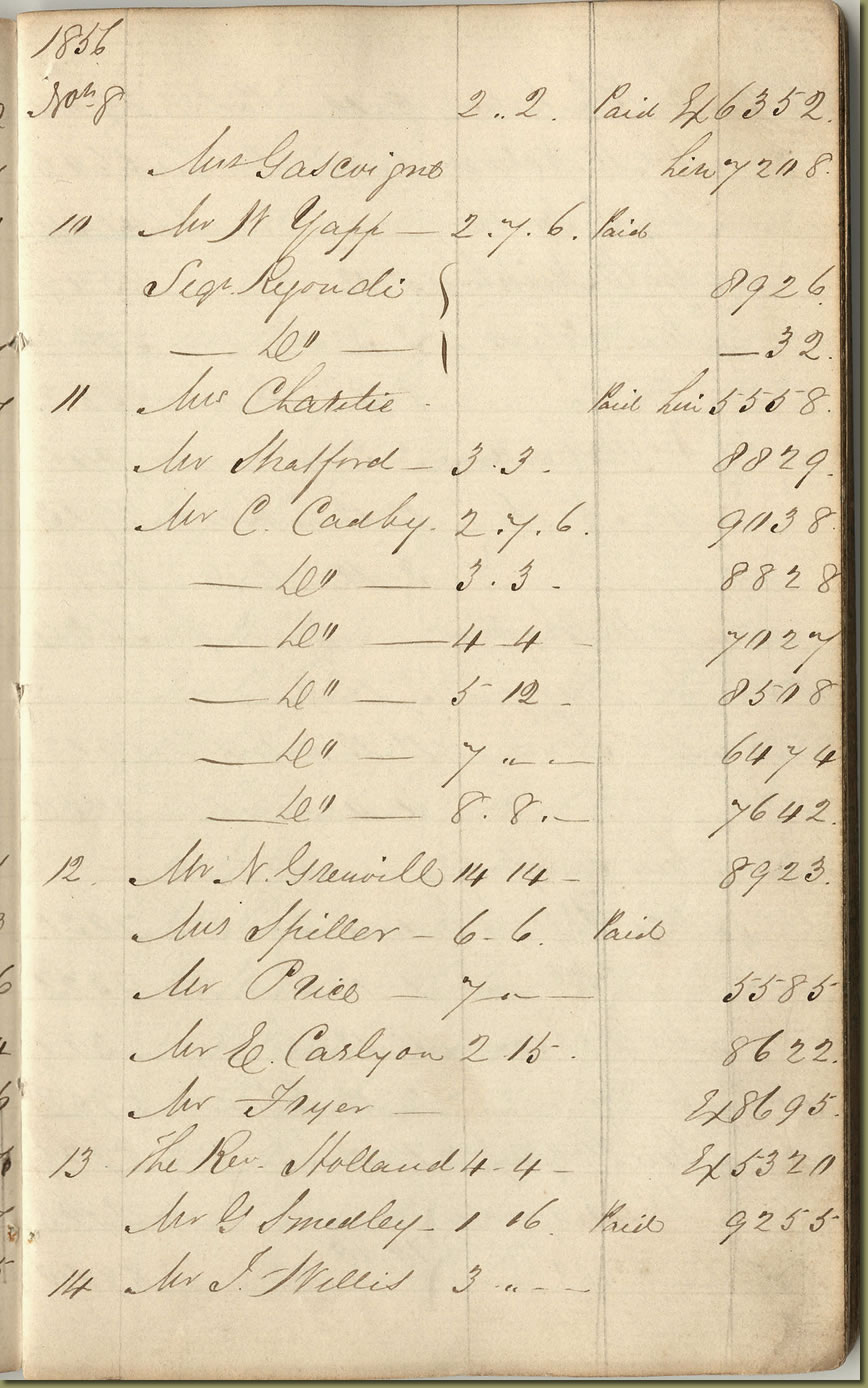 1856
Novr 8 2 .. 2 . Paid Ex 6352.
Mrs Gascoigne Lin 7208.
10 Mr W Yapp — 2 . 7 . 6 . Paid
Sigr Ryondi { 8926
— Do " — — 32.
11 Mrs Paid Lin 5558.
Mr Shafford — 3 . 3 . 8829.
Mr C. Cadby. 2 . 7 . 6 . 9038
— Do " — 3 . 3 - 8828
— Do " — 4 4 - 7027
— Do " — 5 12 - 8508
— Do " — 7 " - — 6474
— Do " — 8 . 8 . — 7642.
12. Mr N. Grenvill 14 14 - 8923.
Mrs Spiller — 6 - 6 . Paid
Mr Price — 7 - — 5585
Mr E. Carlyon 2 15 . 8622.
Mr Fryer — Ex 8695.
13 The Rev. Holland 4 - 4 - Ex 5320
Mr G Smedley - 1 16 . Paid 9255
14 Mr J. Willis 3 " - —